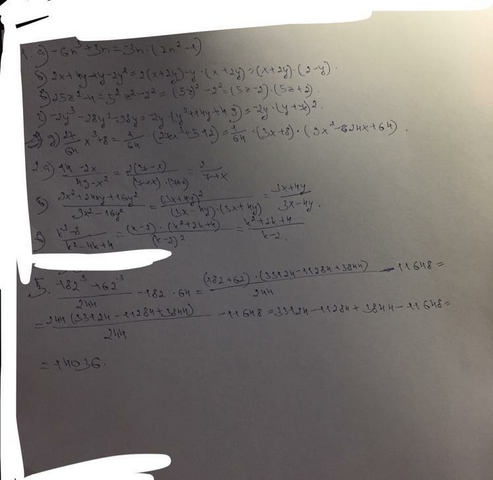 a) -6n³+3n = 3n·(2n²-1)
б) 2x+4y-xy-2y² = 2(x+2y)-y·(x+2y) = (x+2y)·(2-y).
в) 25z²-4 = 5²z²-2² = (5z)²-2² = (5z-2)·(5z+2).
г) -2y³-28y²-98y = -2y·(y²+14y+49) = -2y·(y+7)².
д) 27/64 x³+8 = 1/64 · (27x³+512) = 1/64 · (3x+8)·(9x²-24x+64).
2.a) (14-2x)/(49-x²) = 2(7-x)/((7-x)·(7+x)) = 2/(7+x)
б) (9x²+24xy+16y²)/(9x²-16y²) = (3x+4y)²/((3x-4y)·(3x+4y)) = (3x+4y)/(3x-4y).
в) (k³-8)/(k²-4k+4) = (k-2)·(k²+2k+4)/(k-2)² = (k²+2k+4)/(k-2).
5. (182³+62³)/244 - 182·64 = (182+62)·(33124-11284+3844)/244 - 11648 =
= 244·(33124-11284+3844)/244 - 11648 = 33124-11284+3844-11648 =
= 14036.